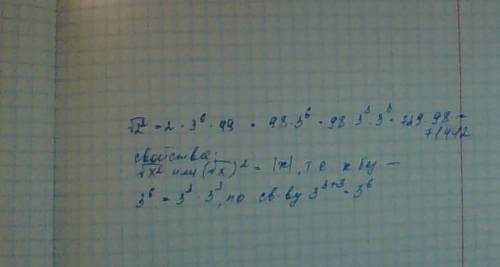 √2² = 2 · 3⁶ · 49 = 98 · 3⁶ = 98 · 3³ · 3³ = 729 · 98 =
71442
свойства:
√x² или (√x)² = |x|, т.е
3⁶ = 3³ · 3³, по св-ву 3³⁺³ = 3⁶